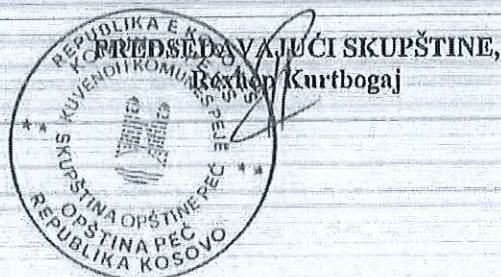 PREDSEDAVAJUĆI SKUPŠTINE,
Rexhep Kurtbogaj
REPUBLIKA E KOSOVËS
KUVENDI I KOMUNËS PEJË
SKUPŠTINA OPŠTINE PEĆ
OPŠTINA PEĆ
REPUBLIKA KOSOVO